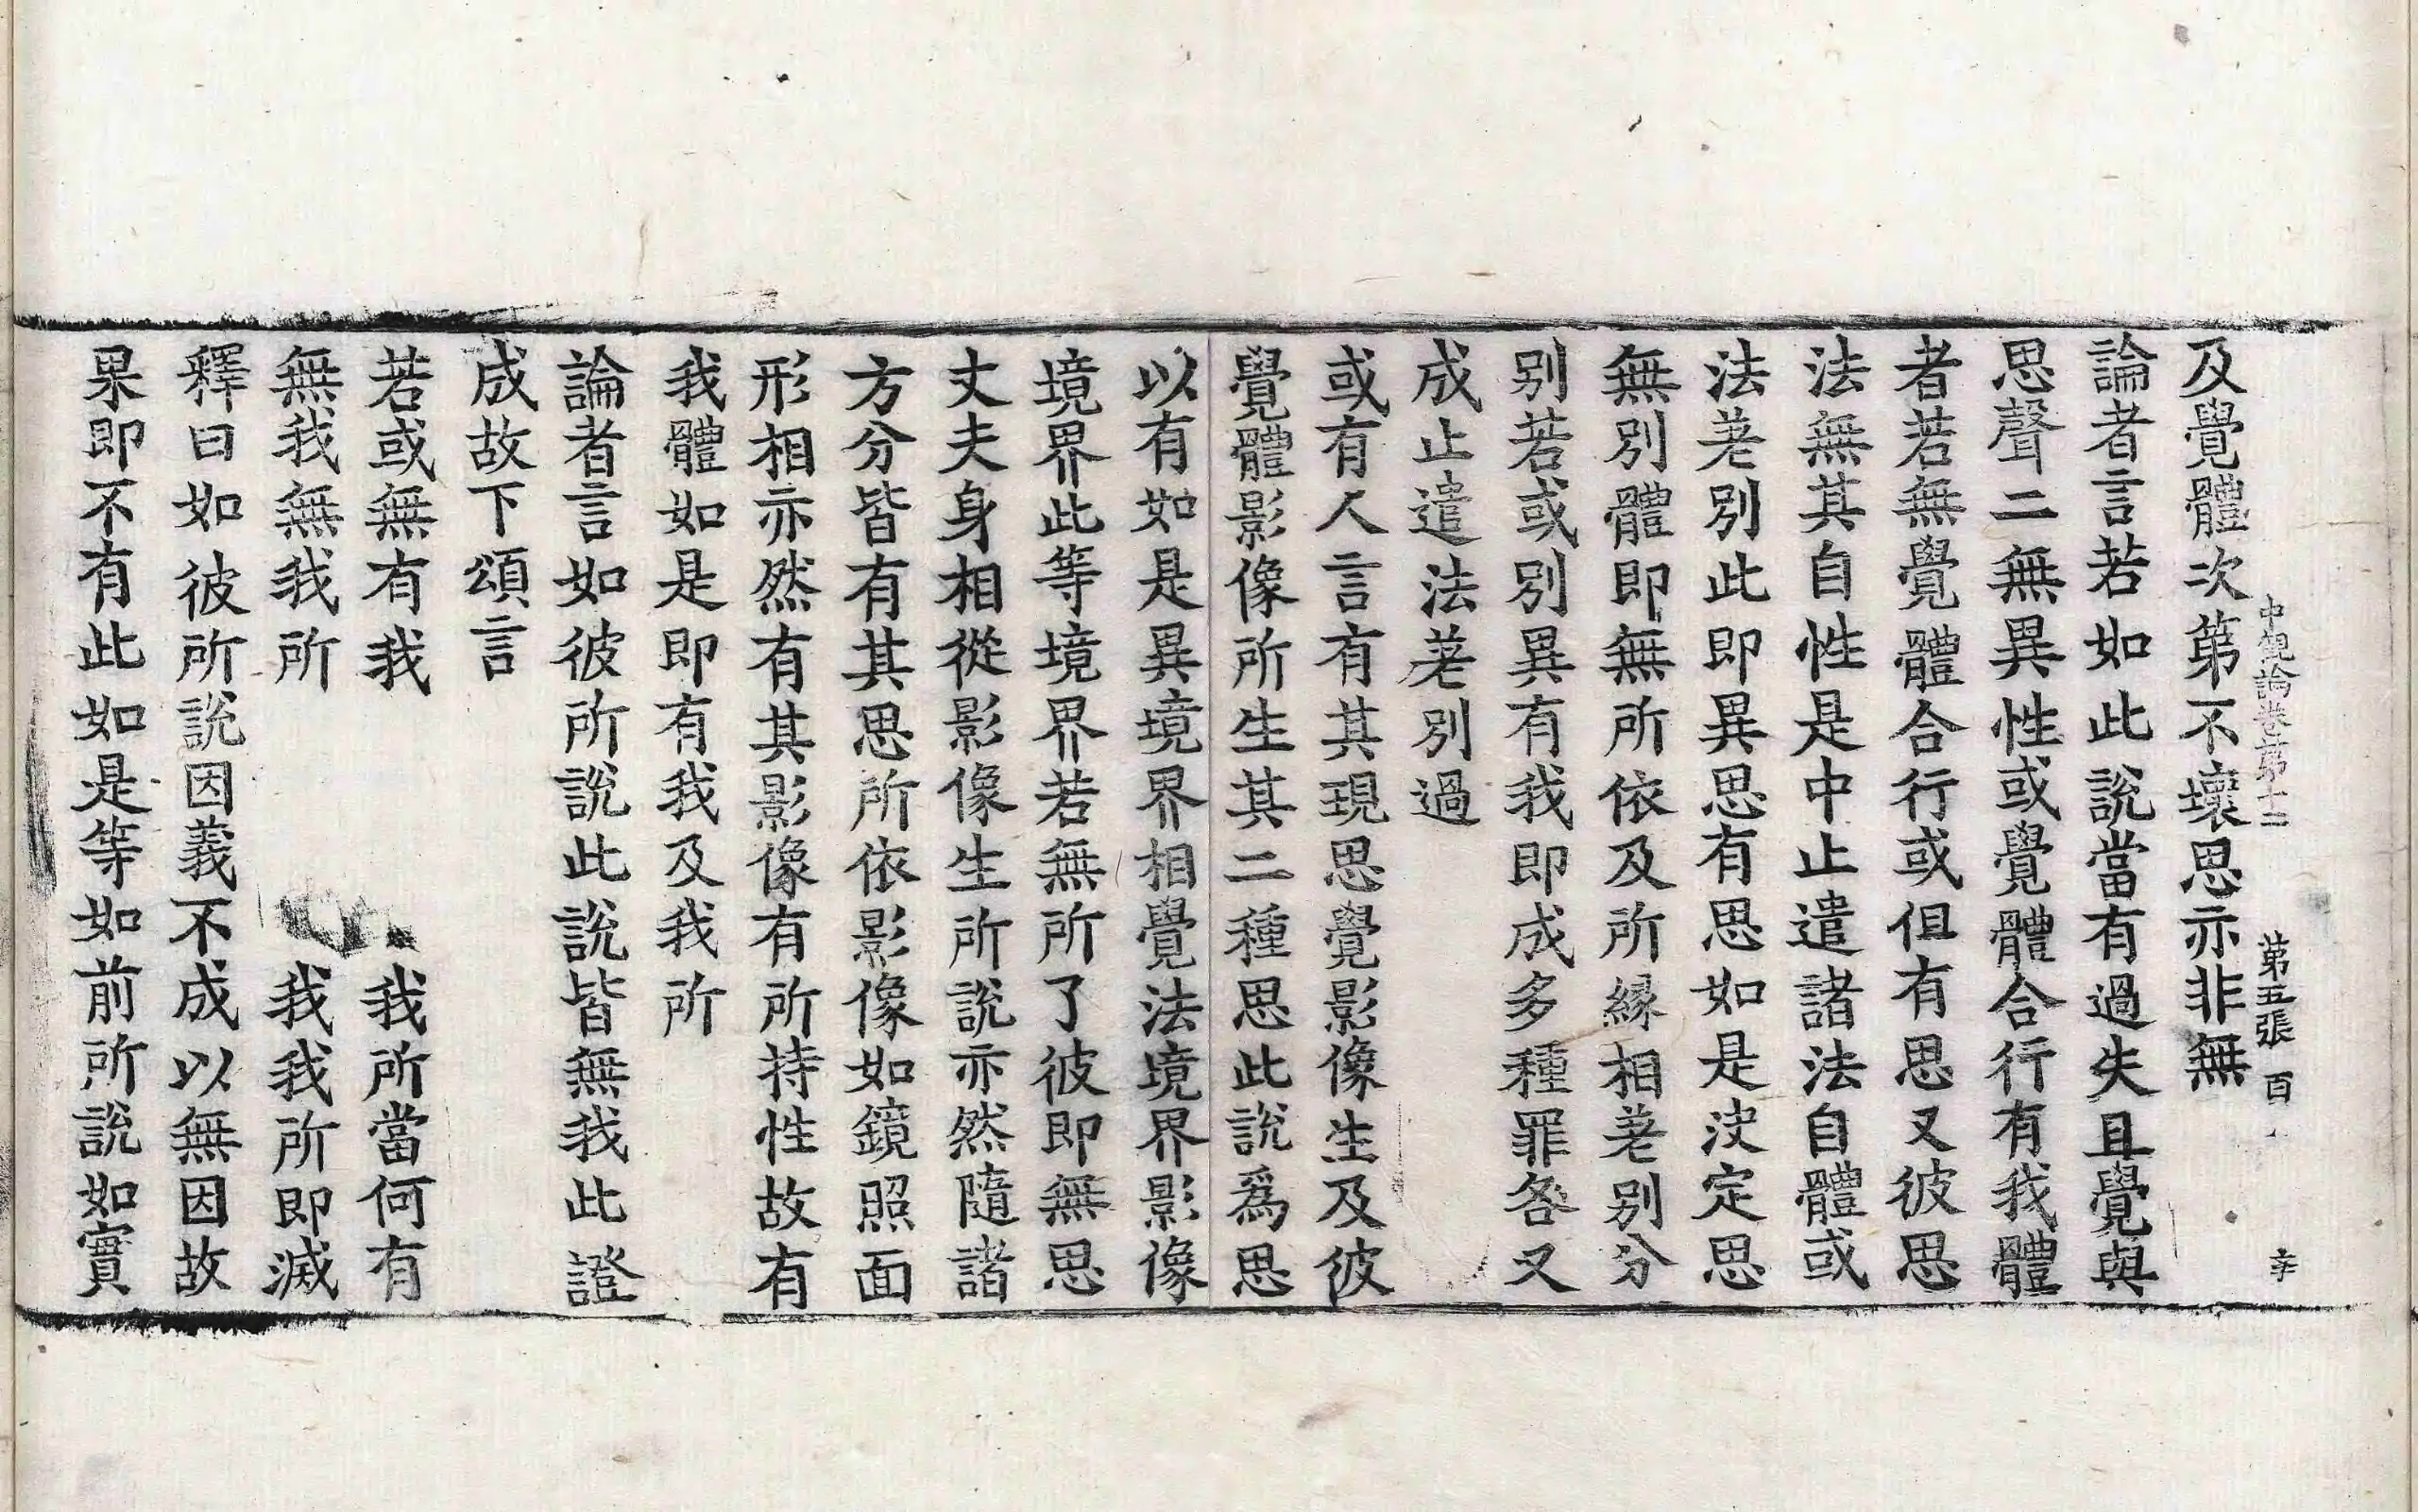 中觀論卷第十二 第五張 百
及覺體次第不壞思亦非無
論者言若如此說當有過失且覺與
思聲二無異性或覺體合行有我體
者若無覺體合行或但有思又彼思
法無其自性是中止遣諸法自體或
法差別此即異思有思如是決定思
無別體即無所依及所緣相差別分
別若或別異有我即成多種罪咎又
成止遣法差別過
或有人言有其現思覺影像生及彼
覺體影像所生其二種思此說爲思
以有如是異境界相覺法境界影像
境界此等境界若無所了彼即無思
丈夫身相從影像生所說亦然隨諸
方分皆有其思所依影像如鏡照面
形相亦然有其影像有所持性故有
我體如是即有我及我所
論者言如彼所說此說皆無我此證
成故下頌言
若或無有我 我所當何有
無我無我所 我我所即滅
釋曰如彼所說因義不成以無因故
果即不有此如是等如前所說如實